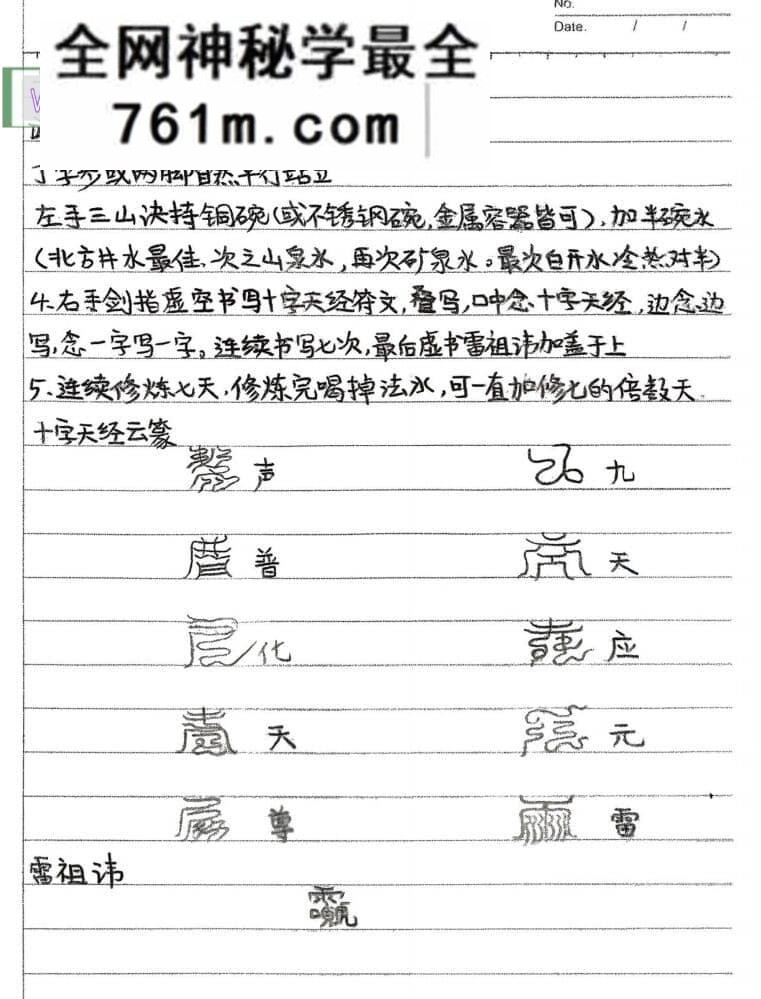 No.
Date. / /
全网神秘学最全
761m.com
左手三山诀持铜碗(或不锈钢碗,金属容器皆可),加半碗水
(北方井水最佳、次之山泉水,再次矿泉水。最次白开水冷热对半)
4.右手剑指虚空书写十字天经符文,叠写,口中念十字天经,边念边
写,念一字写一字。连续书写七次,最后虚书雷祖讳加盖于上
5.连续修炼七天,修炼完喝掉法水,可一直加修七的倍数天.
十字天经云篆
声 九
普 天
化 应
天 元
尊 雷
雷祖讳